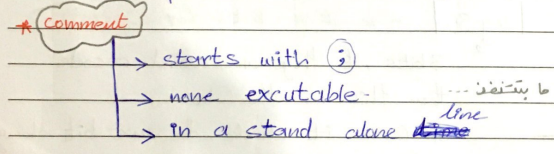 * comment
→ starts with ;
→ none excutable - ما بتتنفذ ...
→ in a stand alone line